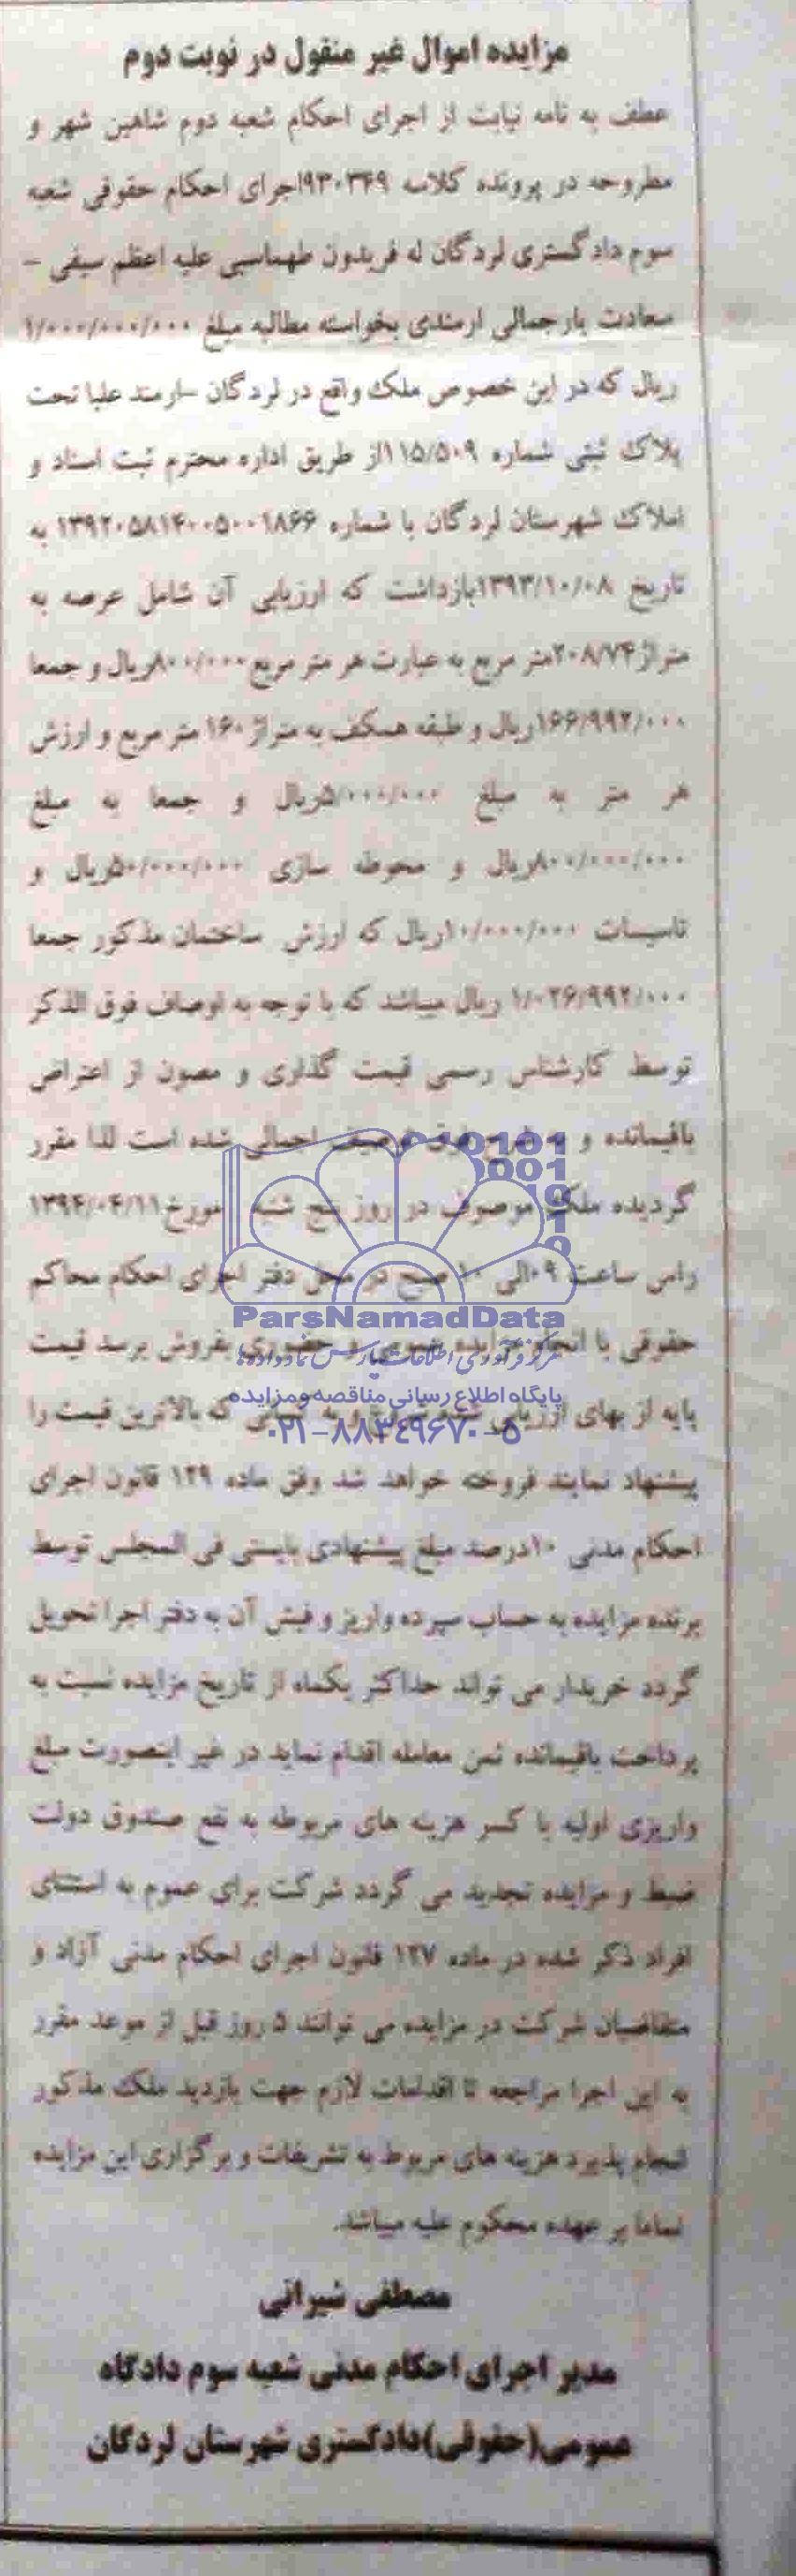 مزایده اموال غیر منقول در نوبت دوم
عطف به نامه نیابت از اجرای احکام شعبه دوم شاهین شهر و
مطروحه در پرونده کلاسه ۹۳۰۳۴۹اجرای احکام حقوقی شعبه
سوم دادگستری لردگان له فریدون طهماسبی علیه اعظم سیفی -
سعادت یار جمالی ارمندی بخواسته مطالبه مبلغ ۱/۰۰۰/۰۰۰/۰۰۰
ریال که در این خصوص ملک واقع در لردگان -ارمند علیا تحت
پلاک ثبتی شماره ۱۱۵/۵۰۹از طریق اداره محترم ثبت اسناد و
املاک شهرستان لردگان با شماره ۱۳۹۲۰۵۸۱۴۰۰۵۰۰۱۸۶۶ به
تاریخ ۱۳۹۳/۱۰/۰۸بازداشت که ارزیابی آن شامل عرصه به
متراژ۲۰۸/۷۴متر مربع به عبارت هر متر مربع ۸۰۰/۰۰۰ریال و جمعا
۱۶۶/۹۹۲/۰۰۰ریال و طبقه همکف به متراژ ۱۶۰ متر مربع و ارزش
هر متر به مبلغ ۵/۰۰۰/۰۰۰ریال و جمعا به مبلغ
۸۰۰/۰۰۰/۰۰۰ریال و محوطه سازی ۵۰/۰۰۰/۰۰۰ریال و
تاسیسات ۱۰/۰۰۰/۰۰۰ریال که ارزش ساختمان مذکور جمعا
۱/۰۲۶/۹۹۲/۰۰۰ ریال میباشد که با توجه به اوصاف فوق الذکر
توسط کارشناس رسمی قیمت گذاری و مصون از اعتراض
باقیمانده و به شرح فوق توصیف اجمالی شده است لذا مقرر
گردیده ملک موصوف در روز پنج شنبه مورخ۱۳۹۴/۰۴/۱۱
راس ساعت ۰۹الی ۱۰ صبح در محل دفتر اجرای احکام محاکم
حقوقی با انجام مزایده حضوری بفروش برسد قیمت
پایه از بهای ارزیابی شده شروع و به کسانی که بالاترین قیمت را
پیشنهاد نمایند فروخته خواهد شد وفق ماده ۱۲۹ قانون اجرای
احکام مدنی ۱۰درصد مبلغ پیشنهادی بایستی فی المجلس توسط
برنده مزایده به حساب سپرده واریز و فیش آن به دفتر اجرا تحویل
گردد خریدار می تواند حداکثر یکماه از تاریخ مزایده نسبت به
پرداخت باقیمانده ثمن معامله اقدام نماید در غیر اینصورت مبلغ
واریزی اولیه با کسر هزینه های مربوطه به نفع صندوق دولت
ضبط و مزایده تجدید می گردد شرکت برای عموم به استثنای
افراد ذکر شده در ماده ۱۲۷ قانون اجرای احکام مدنی آزاد و
متقاضیان شرکت در مزایده می توانند ۵ روز قبل از موعد مقرر
به این اجرا مراجعه تا اقدامات لازم جهت بازدید ملک مذکور
انجام پذیرد هزینه های مربوط به تشریفات و برگزاری این مزایده
تماما بر عهده محکوم علیه میباشد.
مصطفی شیرانی
مدیر اجرای احکام مدنی شعبه سوم دادگاه
عمومی(حقوقی)دادگستری شهرستان لردگان
ParsNamadData
مرکز فرآوری اطلاعات پارس نماد داده ها
پایگاه اطلاع رسانی مناقصه و مزایده
۰۲۱-۸۸۳۴۹۶۷۰-۵